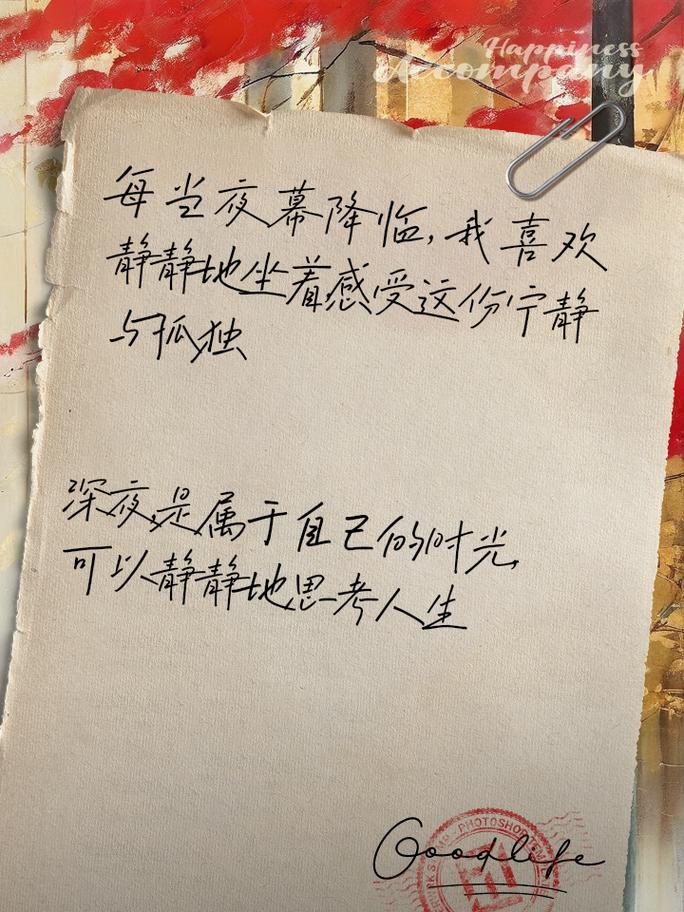 Happiness
Accompany
每当夜幕降临,我喜欢
静静地坐着感受这份宁静
与孤独
深夜,是属于自己的时光,
可以静静地思考人生
PHOTOSHOP
Goodlife